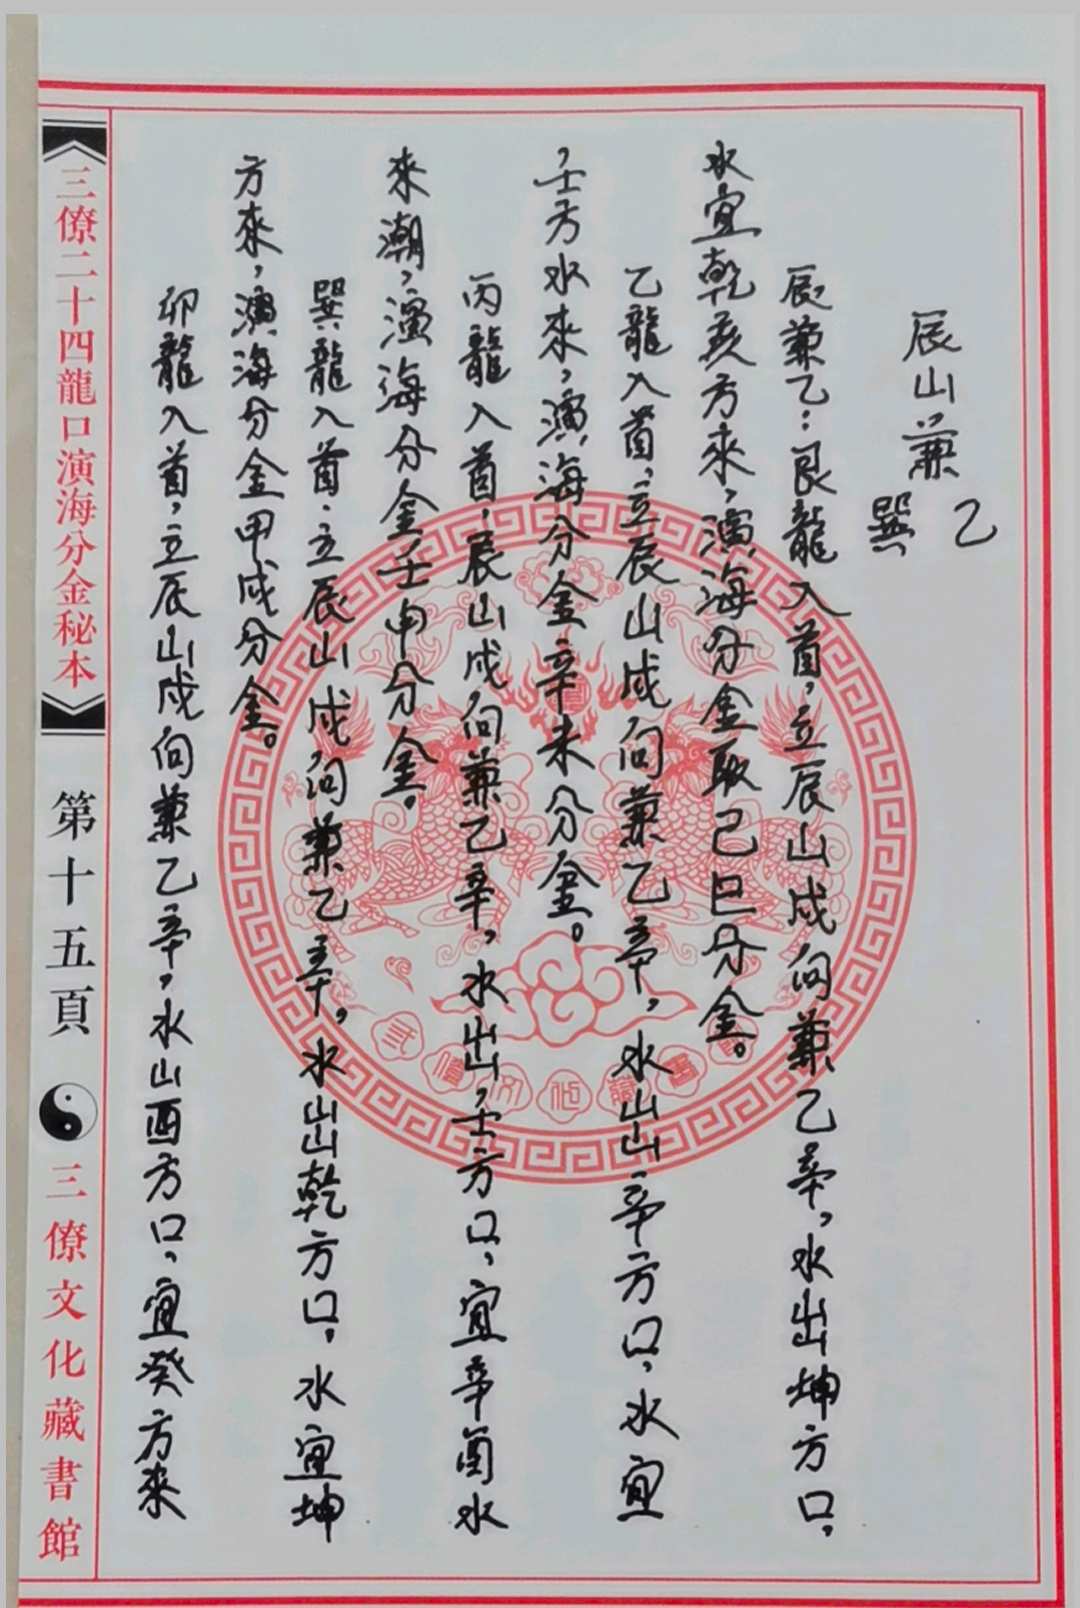 辰山兼乙
巽
辰兼乙：艮龍入首，立辰山戌向兼乙辛，水出坤方口，
水宜乾亥方來，演海分金取己巳分金。
乙龍入首，立辰山戌向兼乙辛，水出辛方口，水宜
，壬方水來，演海分金辛未分金。
丙龍入首，辰山戌向兼乙辛，水出，壬方口，宜辛酉水
來潮，演海分金壬申分金。
巽龍入首，立辰山戌向兼乙辛，水出乾方口，水宜坤
方來，演海分金甲戌分金。
卯龍入首，立辰山戌向兼乙辛，水山酉方口，宜癸方來
三僚二十四龍口演海分金秘本
第十五頁
三僚文化藏書館